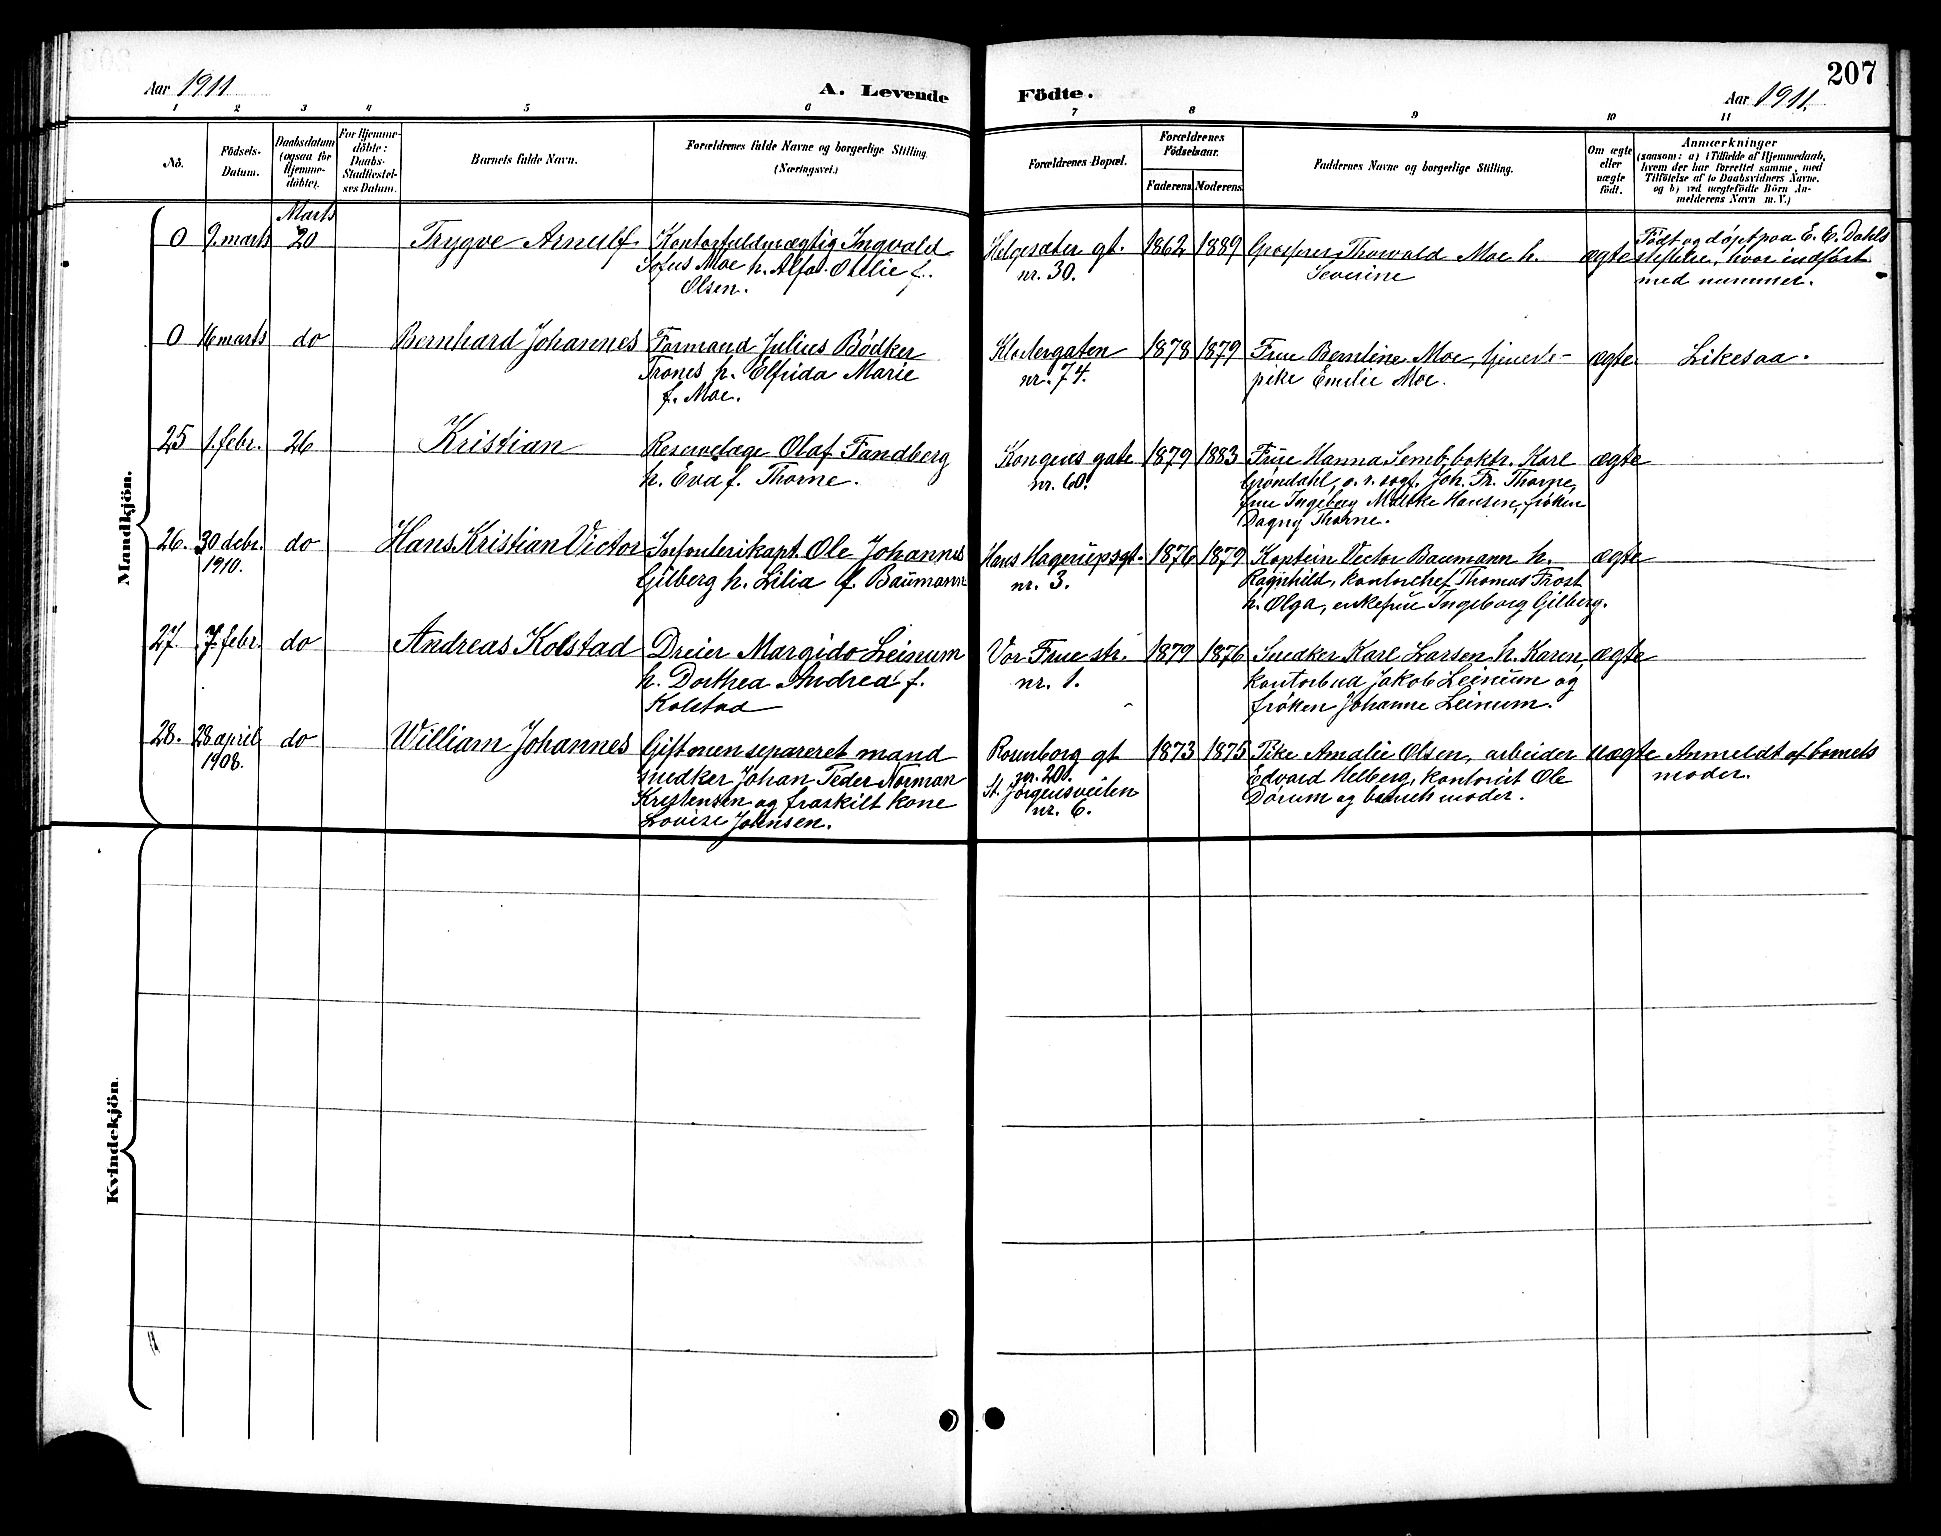 207
Aar 1911
A. Levende Födte.
Aar 1911.
1 2 3 4 5 6 7 8 9 10 11
No.
Födsels-
Datum.
Daabsdatum
(ogsaa for
Hjemme-
döbte).
For Hjemme-
döbte:
Daabs-
Stadfæstel-
ses Datum.
Barnets fulde Navn.
Forældrenes fulde Navne og borgerlige Stilling.
(Næringsvei.)
Forældrenes Bopæl.
Forældrenes
Födselsaar.
Faderens. Moderens.
Faddernes Navne og borgerlige Stilling.
Om ægte
eller
uægte
født.
Anmærkninger
(saasom: a) i Tilfælde af Hjemmedaab,
hvem der har forrettet samme, med
Tilföielse af to Daabsvidners Navne.
og b) ved uægtefödte Börn An-
melderens Navn m. V.)
Mandkjön.
Marts
0 9. marts 20
Trygve Arnulf
Kontorfuldmægtig Ingvald
Sofus Moe h. Alfa Otelie f.
Olsen.
Helgesæter gt.
nr. 30.
1862 1889
Grosserer Thorvald Moe h.
Severine
ægte
Födt og döpt paa E. C. Dahls
stiftelse, hvor indført
med nummer.
0 16 marts do
Bernhard Johannes
Formand Julius Bödker
Trones h. Elfrida Marie
f. Moe.
Klostergaten
nr. 74.
1878 1879
Frue Berntine Moe, tjeneste-
pike Emilie Moe.
ægte
Likesaa.
25 1. febr. 26
Kristian
Reservelæge Olaf Tandberg
h. Eva f. Thorne.
Kongens gate
nr. 60.
1879 1883
Frue Hanna Semb, bokh. Karl
Gröndahl, o. r. sagf. Joh. Fr. Thorne,
frue Ingeborg Moltke Hansen, fröken
Dagny Thorne.
ægte
26. 30 debr.
1910.
do
Hans Kristian Victor
Infanterikapt. Ole Johannes
Gilberg h. Lilia f. Baumann
Hans Hagerupsgt.
nr. 3.
1876 1879
Kaptein Victor Baumann h.
Ragnhild, kontorchef Thomas Frost
h. Olga, enkefrue Ingeborg Gilberg.
ægte
27. 7. febr. do
Andreas Kolstad
Dreier Margido Leinum
h. Dorthea Andrea f.
Kolstad
Vor Frue str.
nr. 1.
1879 1876
Snedker Karl Larsen h. Karen,
kontorbud Jakob Leinum og
fröken Johanne Leinum.
ægte
28. 28 april
1908.
do
William Johannes
Gift men separeret mand
snedker Johan Peder Norman
Kristensen og fraskilt kone
Lovise Johnsen.
Rosenborg gt
nr. 20.
St. Jörgensveiten
nr. 6.
1873 1875
Pike Amalie Olsen, arbeider
Edvard Helberg, kontorist Ole
Dörum og barnets moder.
uægte
Anmeldt af barnets
moder.
Kvindekjön.